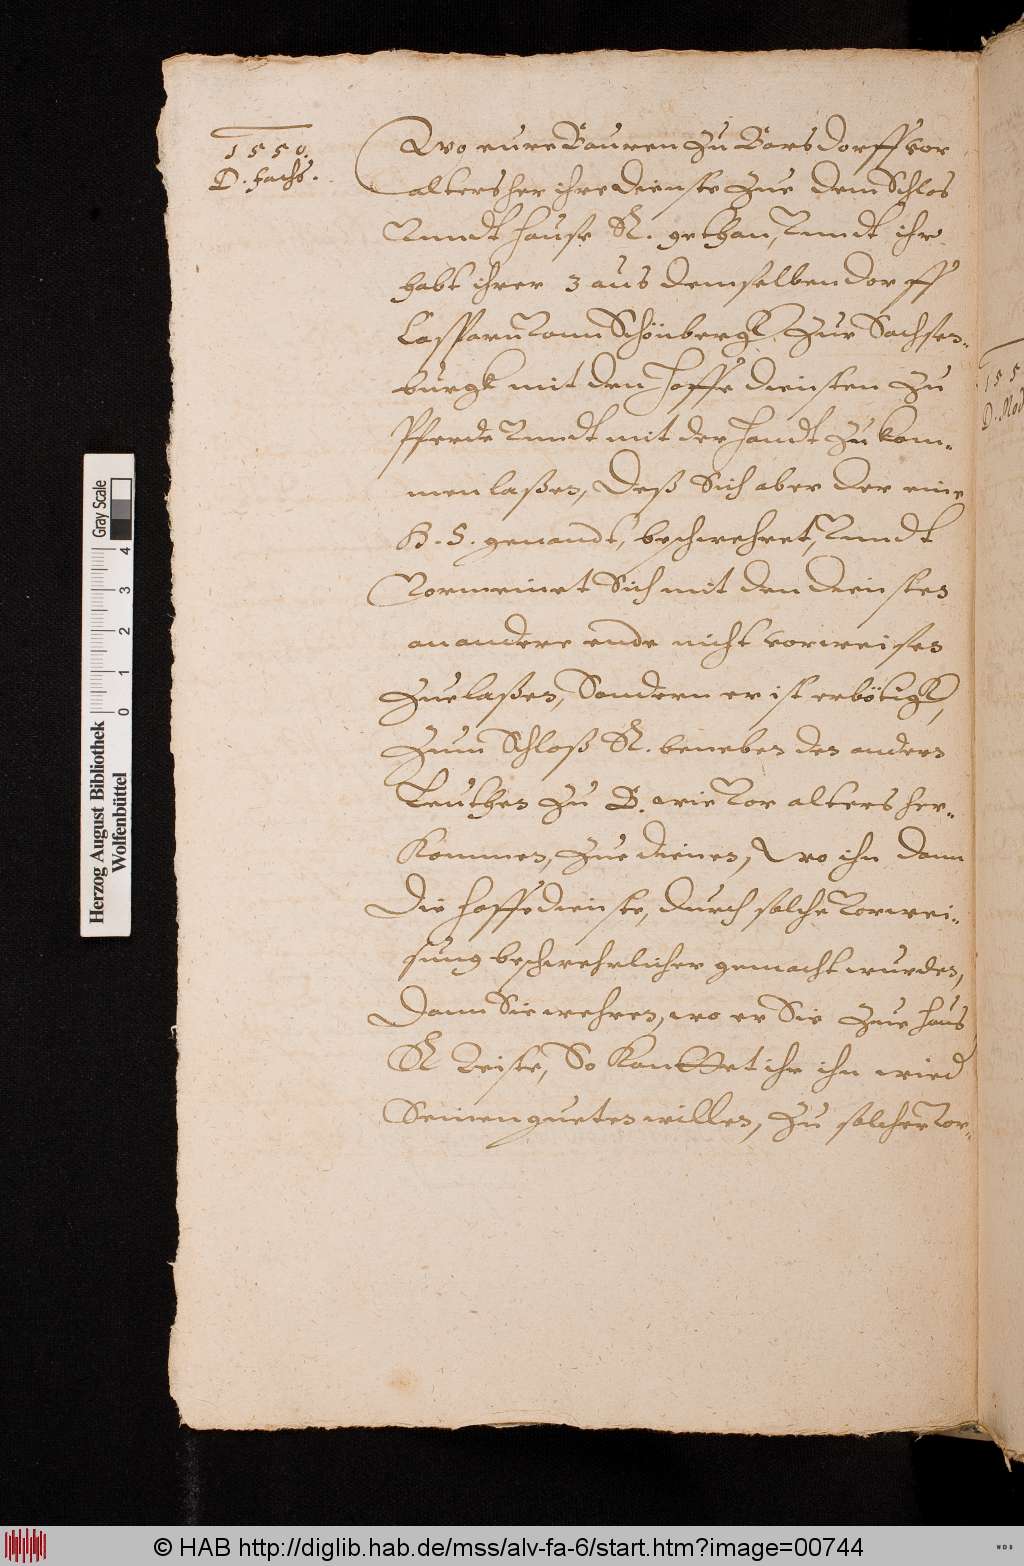 1550.
D. Fachs.
Wo eure Bauren zu Borsdorff vor
alters her ihre dienste zue dem Schlos
Vnndt Hause R. gethan, Vnndt ihr
habt ihrer 3 aus demselben dorff
Casparn Vonn Schönbergk zur Sachsen-
burgk mit den Hoffediensten zu
Pferde Vnndt mit der Handt zu kom-
men laßen, Deß Sich aber der eine
H. S. genandt, beschwehret, Vnndt
Vormeinet Sich mit den diensten
an andere ende nicht vorweisen
zuelaßen, Sondern er ist erbötigk,
zum Schloß R. beneben den andern
Leuthen zu B. wie Vor alters her-
kommen, zue dienen, Wo ihn dann
die Hoffedienste, durch solche Vorwei-
sung beschwehrlicher gemacht wurden,
Dann Sie wehren, wo er Sie zue Haus
R leiste, So konttet ihr ihn wied
Seinen gueten willen, zu solcher Vor-
155
D. Mod
Herzog August Bibliothek
Wolfenbüttel
Gray Scale
0 1 2 3 4
© HAB http://diglib.hab.de/mss/alv-fa-6/start.htm?image=00744